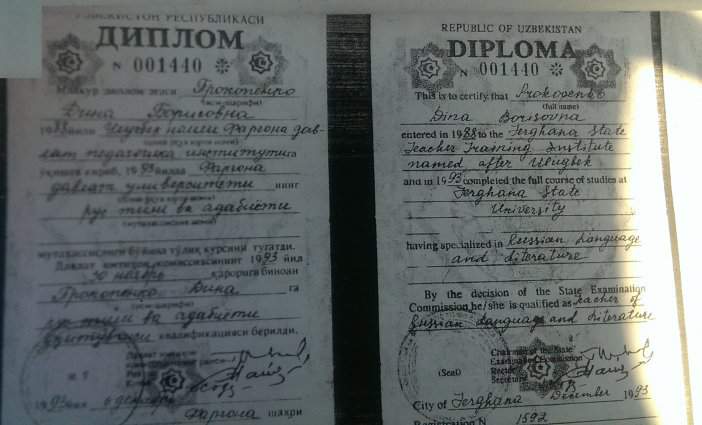 ЎЗБЕКИСТОН РЕСПУБЛИКАСИ
ДИПЛОМ
N 001440
Мазкур диплом эгаси Прокопенко
(исми-шарифи)
Дина Борисовна
1988 йилда Улуғбек номли Фарғона дав-
лат педагогика институтига
ўқишга кириб, 1993 йилда Фарғона
давлат университети нинг
рус тили ва адабиёти
мутахассислиги бўйича тўлиқ курсини тугатди.
Давлат имтиҳон комиссиясининг 1993 йил
30 ноябрь қарорига биноан
Прокопенко Дина га
рус тили ва адабиёти
ўқитувчиси квалификацияси берилди.
1993 йил 6 декабрь
Фарғона шаҳри
REPUBLIC OF UZBEKISTAN
DIPLOMA
N 001440
This is to certify that Prokopenko
(full name)
Dina Borisovna
entered in 1988 to the Ferghana State
Teacher Training Institute
named after Ulugbek
and in 1993 completed the full course of studies at
Ferghana State
University
having specialized in Russian Language
and Literature
By the decision of the State Examination
Commission he/she is qualified as teacher of
Russian Language and Literature
Chairman of the State
Examination Commission
Rector
(Seal)
Secretary
City of Ferghana December 1993
Registration N 1592